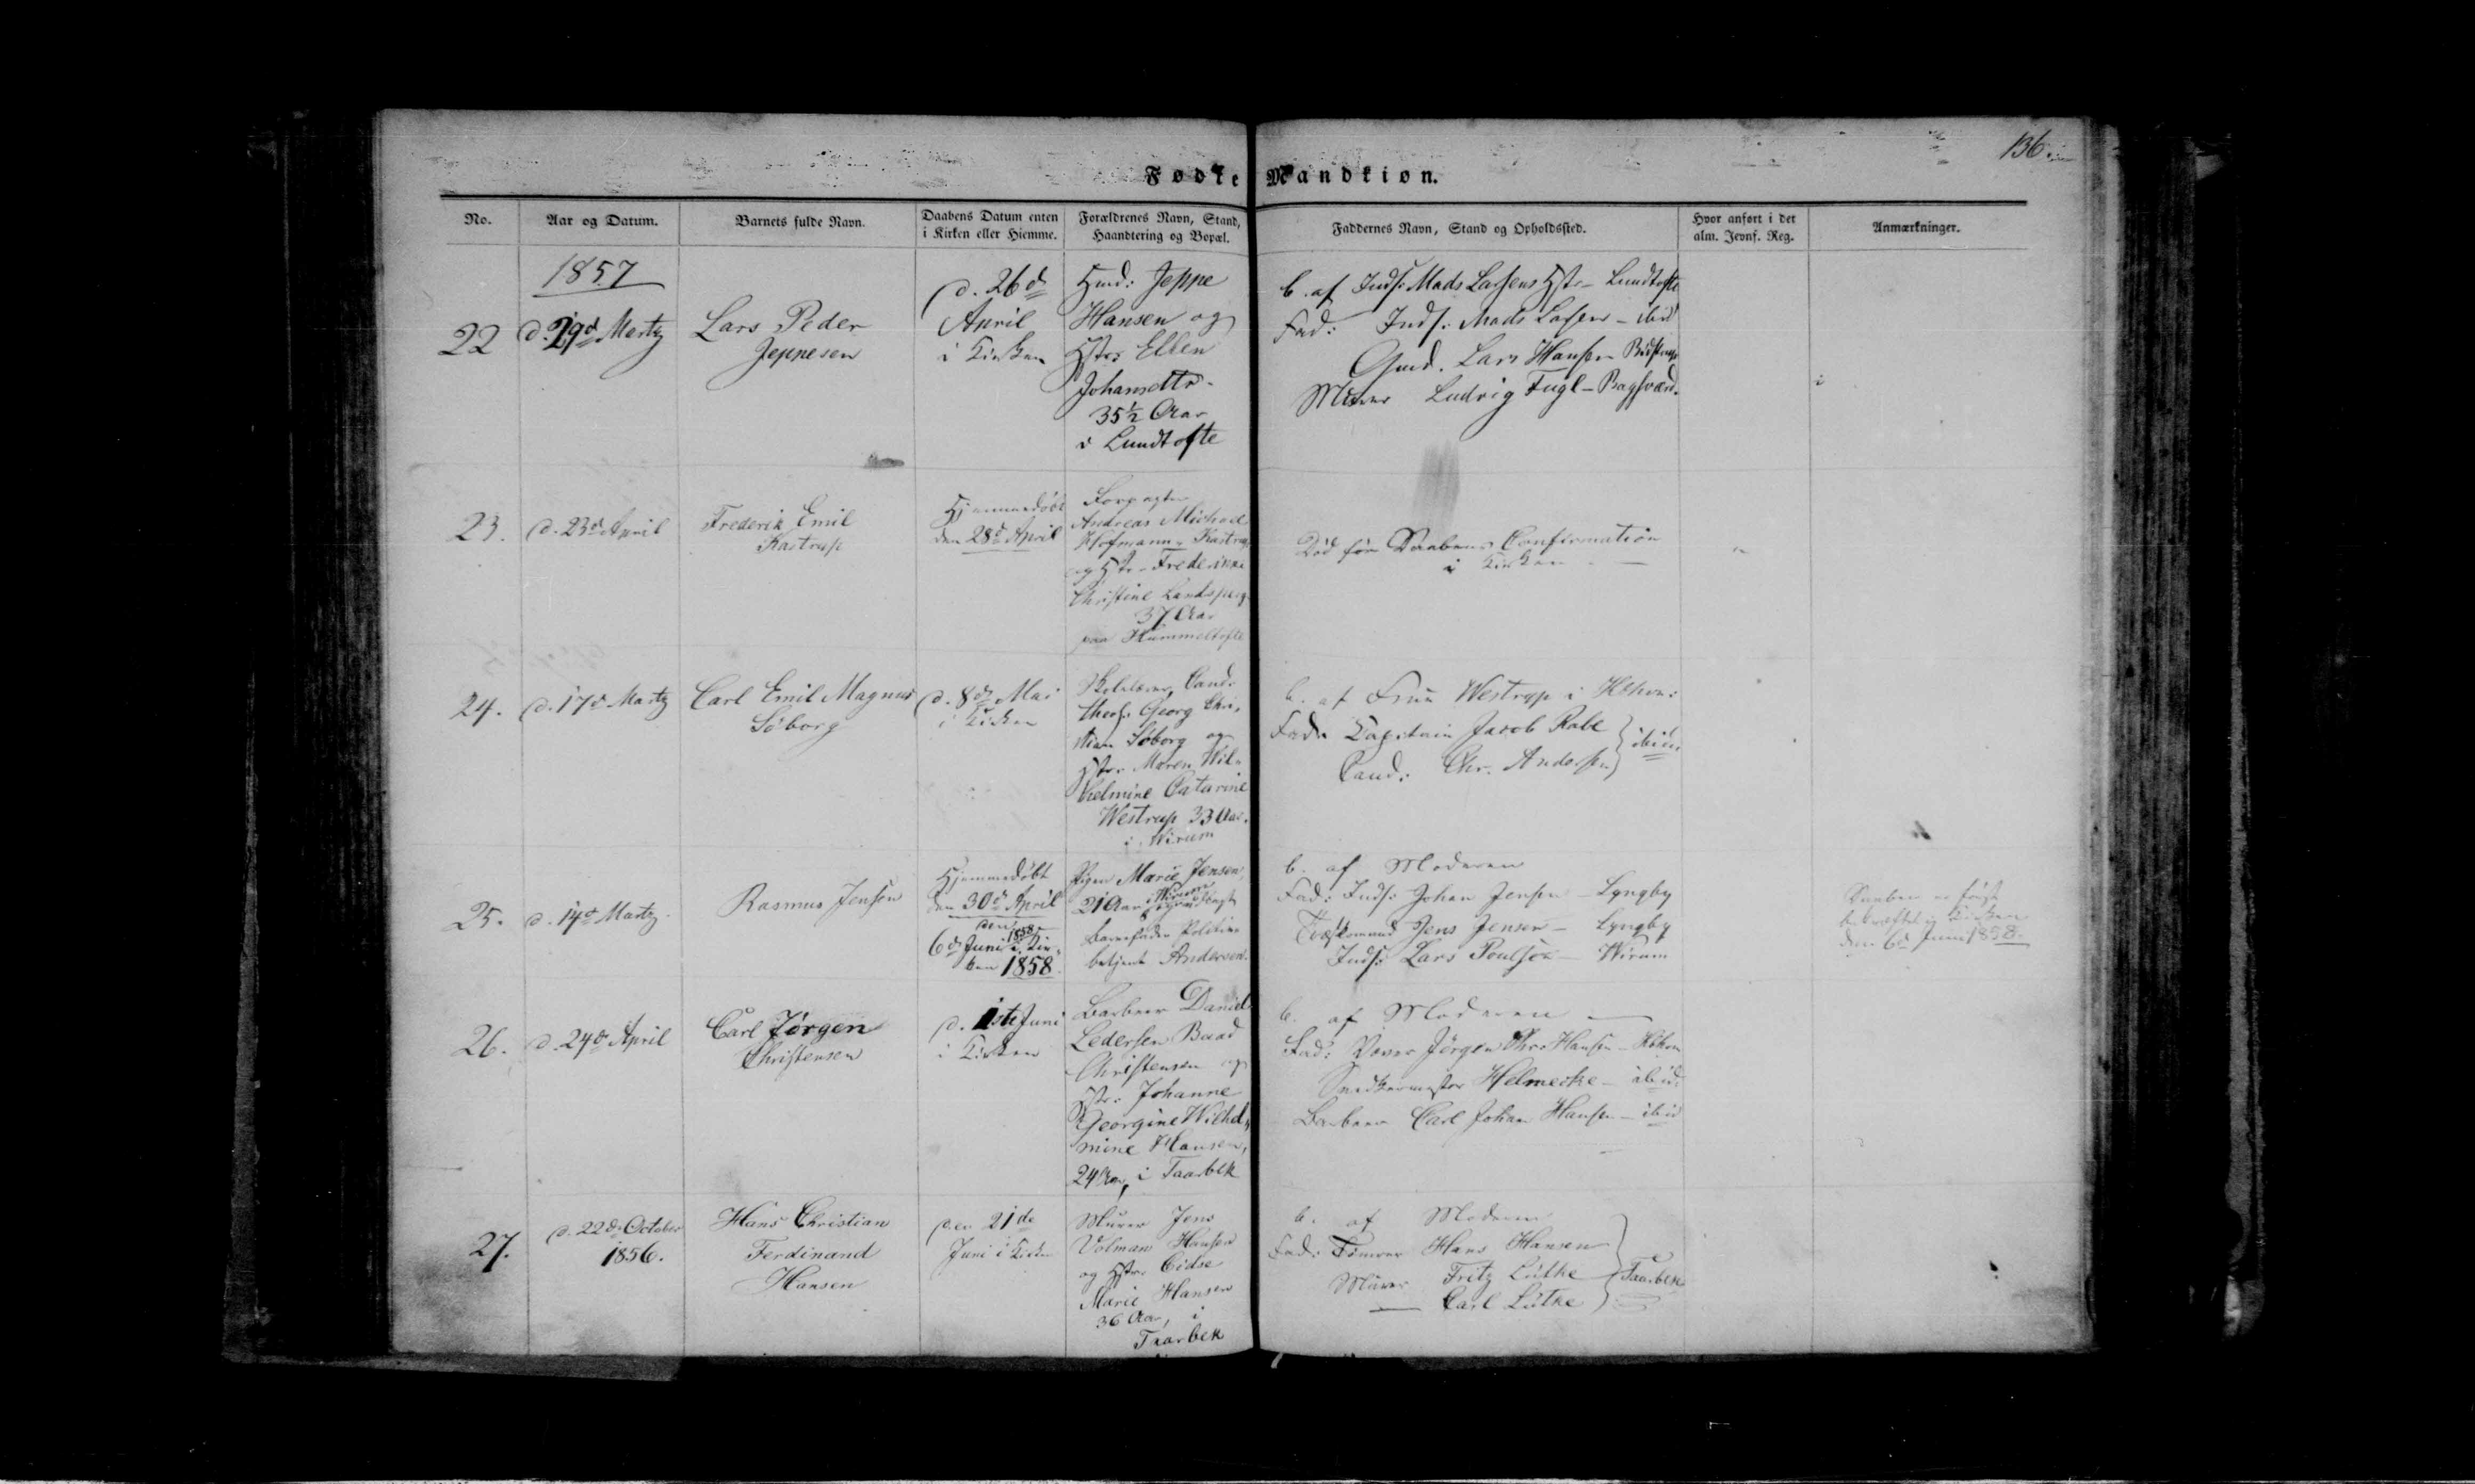 136.
Fødte Mandkiøn.
No.
Aar og Datum.
Barnets fulde Navn.
Daabens Datum enten
i Kirken eller Hiemme.
Forældrenes Navn, Stand,
Haandtering og Bopæl.
Faddernes Navn, Stand og Opholdssted.
Hvor anført i det
alm. Jevnf. Reg.
Anmærkninger.
1857
22
d. 29d Martz
Lars Peder
Jeppesen
d. 26d
April
i Kirken
Hmd: Jeppe
Hansen og
Hstr Ellen
Johansdttr
35½ Aar
i Lundtofte
b. af Inds: Mads Larsens Hstr - Lundtofte
Fad: Inds: Mads Larsen - ibid
Gmd. Lars Hansen
Murer Ludvig Fugl - Bagsværd.
23.
d. 23d April
Frederik Emil
Kastrup
Hjemmedøbt
den 28d April
Forpagter
Andreas Michael
Hofmann Kastrup
og Hstr Frederikke
Christine
37 Aar
paa Hummeltofte
Död før Daabens Confirmation
i Kirken
24.
d. 17d Martz
Carl Emil Magnus
Söborg
d. 8de Mai
i Kirken
Skolelærer, Cand:
theol: Georg Chri-
stian Söborg og
Hstr Maren Wil-
helmine Catarine
Westrup 33 Aar.
i Wirum
b. af Frue Westrup i Kbhvn:
Fad: Capitain Jacob
Cand: Chr. Andersen } ibid:
25.
d. 14d Martz.
Rasmus Jensen
Hjemmedøbt
den 30d April
den
6d Juni 1858 i Kir-
ken 1858.
Pigen Marie Jensen,
21 Aar i Wirum udlagt
Barnefader Politie-
betjent Andersen.
b. af Moderen
Fad: Inds: Johan Jensen - Lyngby
Jens Jensen - Lyngby
Inds: Lars Poulsen - Wirum
Daaben er først
bekræftet i Kirken
den 6d Juni 1858.
26.
d. 24de April
Carl Jörgen
Christensen
d. 1ste Juni
i Kirken
Barbeer Daniel
Pedersen Baad
Christensen og
Hstr: Johanne
Georgine Wilhel-
mine Hansen,
24 Aar, i Taarbek
b. af Moderen
Fad: Jörgen Chr: Hansen - Kbhvn
Snedkermester Helmecke - ibid:
Barbeer Carl Johan Hansen - ibid
27.
d. 22de October
1856.
Hans Christian
Ferdinand
Hansen
den 21de
Juni i Kirken
Murer Jens
Volman Hansen
og Hstr Cidse
Marie Hansen
36 Aar, i
Taarbek
b. af Moderen
Fad: Tömrer Hans Hansen
Murer Fritz Lütke } Taarbek
— Carl Lütke